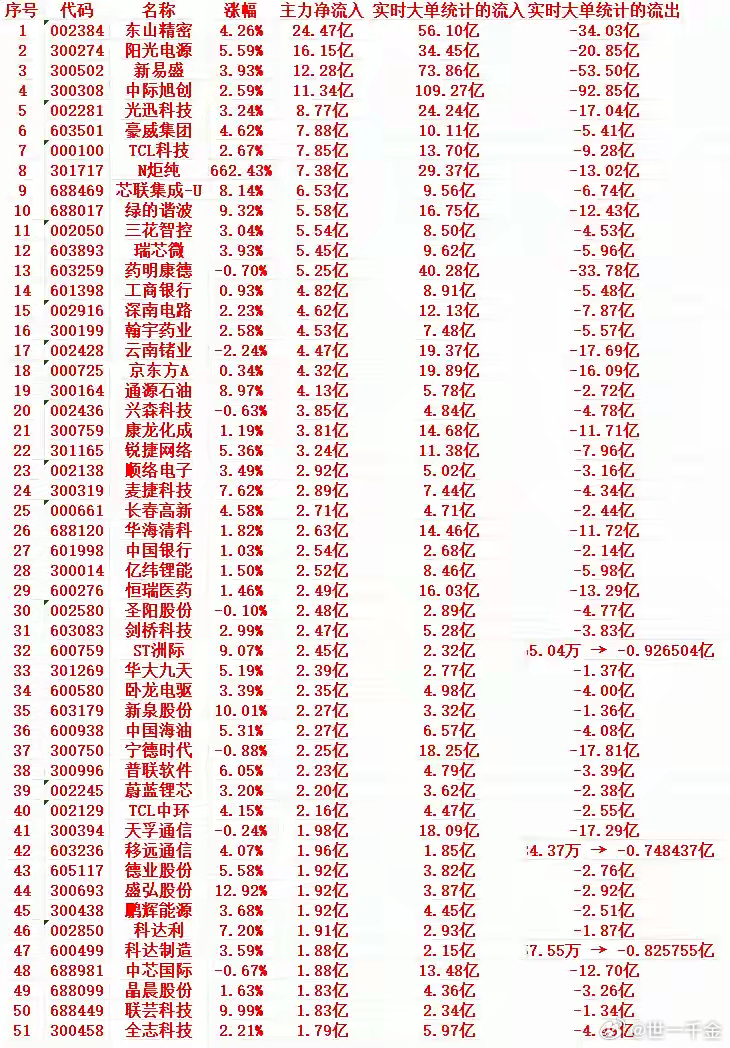 序号 代码 名称 涨幅 主力净流入 实时大单统计的流入 实时大单统计的流出
1 002384 东山精密 4.26% 24.47亿 56.10亿 -34.03亿
2 300274 阳光电源 5.59% 16.15亿 34.45亿 -20.85亿
3 300502 新易盛 3.93% 12.28亿 73.86亿 -53.50亿
4 300308 中际旭创 2.59% 11.34亿 109.27亿 -92.85亿
5 002281 光迅科技 3.24% 8.77亿 24.24亿 -17.04亿
6 603501 豪威集团 4.62% 7.88亿 10.11亿 -5.41亿
7 000100 TCL科技 2.67% 7.85亿 13.70亿 -9.28亿
8 301717 N炬纯 662.43% 7.38亿 29.37亿 -13.02亿
9 688469 芯联集成-U 8.14% 6.53亿 9.56亿 -6.74亿
10 688017 绿的谐波 9.32% 5.58亿 16.75亿 -12.43亿
11 002050 三花智控 3.04% 5.54亿 8.50亿 -4.53亿
12 603893 瑞芯微 3.93% 5.45亿 9.62亿 -5.96亿
13 603259 药明康德 -0.70% 5.25亿 40.28亿 -33.78亿
14 601398 工商银行 0.93% 4.82亿 8.91亿 -5.48亿
15 002916 深南电路 2.23% 4.62亿 12.13亿 -7.87亿
16 300199 翰宇药业 2.58% 4.53亿 7.48亿 -5.57亿
17 002428 云南锗业 -2.24% 4.47亿 19.37亿 -17.69亿
18 000725 京东方A 0.34% 4.32亿 19.89亿 -16.09亿
19 300164 通源石油 8.97% 4.13亿 5.78亿 -2.72亿
20 002436 兴森科技 -0.63% 3.85亿 4.84亿 -4.78亿
21 300759 康龙化成 1.19% 3.81亿 14.68亿 -11.71亿
22 301165 锐捷网络 5.36% 3.24亿 11.38亿 -7.96亿
23 002138 顺络电子 3.49% 2.92亿 5.02亿 -3.16亿
24 300319 麦捷科技 7.62% 2.89亿 7.44亿 -4.34亿
25 000661 长春高新 4.58% 2.71亿 4.71亿 -2.44亿
26 688120 华海清科 1.82% 2.63亿 14.46亿 -11.72亿
27 601998 中国银行 1.03% 2.54亿 2.68亿 -2.14亿
28 300014 亿纬锂能 1.50% 2.52亿 8.46亿 -5.98亿
29 600276 恒瑞医药 1.46% 2.49亿 16.03亿 -13.29亿
30 002580 圣阳股份 -0.10% 2.48亿 2.89亿 -4.77亿
31 603083 剑桥科技 2.99% 2.47亿 5.28亿 -3.83亿
32 600759 ST洲际 9.07% 2.45亿 2.32亿 5.04万 → -0.926504亿
33 301269 华大九天 5.19% 2.39亿 2.77亿 -1.37亿
34 600580 卧龙电驱 3.39% 2.35亿 4.98亿 -4.00亿
35 603179 新泉股份 10.01% 2.27亿 3.32亿 -1.36亿
36 600938 中国海油 5.31% 2.27亿 6.57亿 -4.08亿
37 300750 宁德时代 -0.88% 2.25亿 18.25亿 -17.81亿
38 300996 普联软件 6.05% 2.23亿 4.79亿 -3.39亿
39 002245 蔚蓝锂芯 3.20% 2.20亿 3.62亿 -2.38亿
40 002129 TCL中环 4.15% 2.16亿 4.47亿 -2.55亿
41 300394 天孚通信 -0.24% 1.98亿 18.09亿 -17.29亿
42 603236 移远通信 4.07% 1.96亿 1.85亿 4.37万 → -0.748437亿
43 605117 德业股份 5.58% 1.92亿 3.82亿 -2.76亿
44 300693 盛弘股份 12.92% 1.92亿 3.87亿 -2.92亿
45 300438 鹏辉能源 3.68% 1.92亿 4.45亿 -2.51亿
46 002850 科达利 7.20% 1.91亿 2.93亿 -1.87亿
47 600499 科达制造 3.59% 1.88亿 2.15亿 7.55万 → -0.825755亿
48 688981 中芯国际 -0.67% 1.88亿 13.48亿 -12.70亿
49 688099 晶晨股份 1.63% 1.83亿 4.36亿 -3.26亿
50 688449 联芸科技 9.99% 1.83亿 2.34亿 -1.34亿
51 300458 全志科技 2.21% 1.79亿 5.97亿
@世一千金